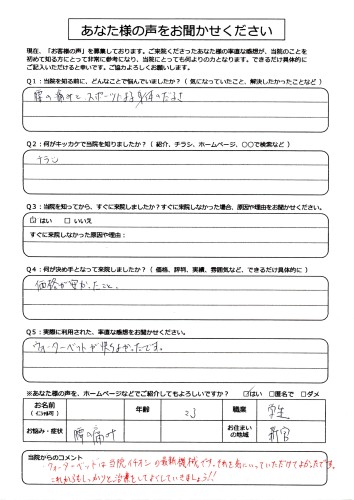 あなた様の声をお聞かせください
現在、「お客様の声」を募集しております。ご来院くださったあなた様の率直な感想が、当院のことを
初めて知る方にとって非常に参考になり、当院にとっても何よりの力となります。できるだけ具体的に
ご記入いただけると幸いです。ご協力よろしくお願いします。
Q1：当院を知る前に、どんなことで悩んでいましたか？（ 気になっていたこと、解決したかったことなど ）
腰の痛みと、スポーツによる身体のだるさ
Q2：何がキッカケで当院を知りましたか？（ 紹介、チラシ、ホームページ、〇〇で検索など ）
チラシ
Q3：当院を知ってから、すぐに来院しましたか？すぐに来院しなかった場合、原因や理由をお聞かせください。
☑ はい　□ いいえ
すぐに来院しなかった原因や理由：
Q4：何が決め手となって来院しましたか？（ 価格、評判、実績、雰囲気など、できるだけ具体的に ）
価格が安かったこと。
Q5：実際に利用された、率直な感想をお聞かせください。
ウォーターベットが気もちよかったです。
※あなた様の声を、ホームページなどでご紹介してもよろしいですか？　☑はい　□匿名で　□ダメ
お名前 年齢 23 職業 学生
（イニシャル可）
お悩み・症状 腰の痛み お住まいの地域
当院からのコメント
ウォーターベットは当院イチオシの最新機械です。それを気にいっていただけてよかったです。
これからもしっかりと治療をしてよくしていきましょう!!